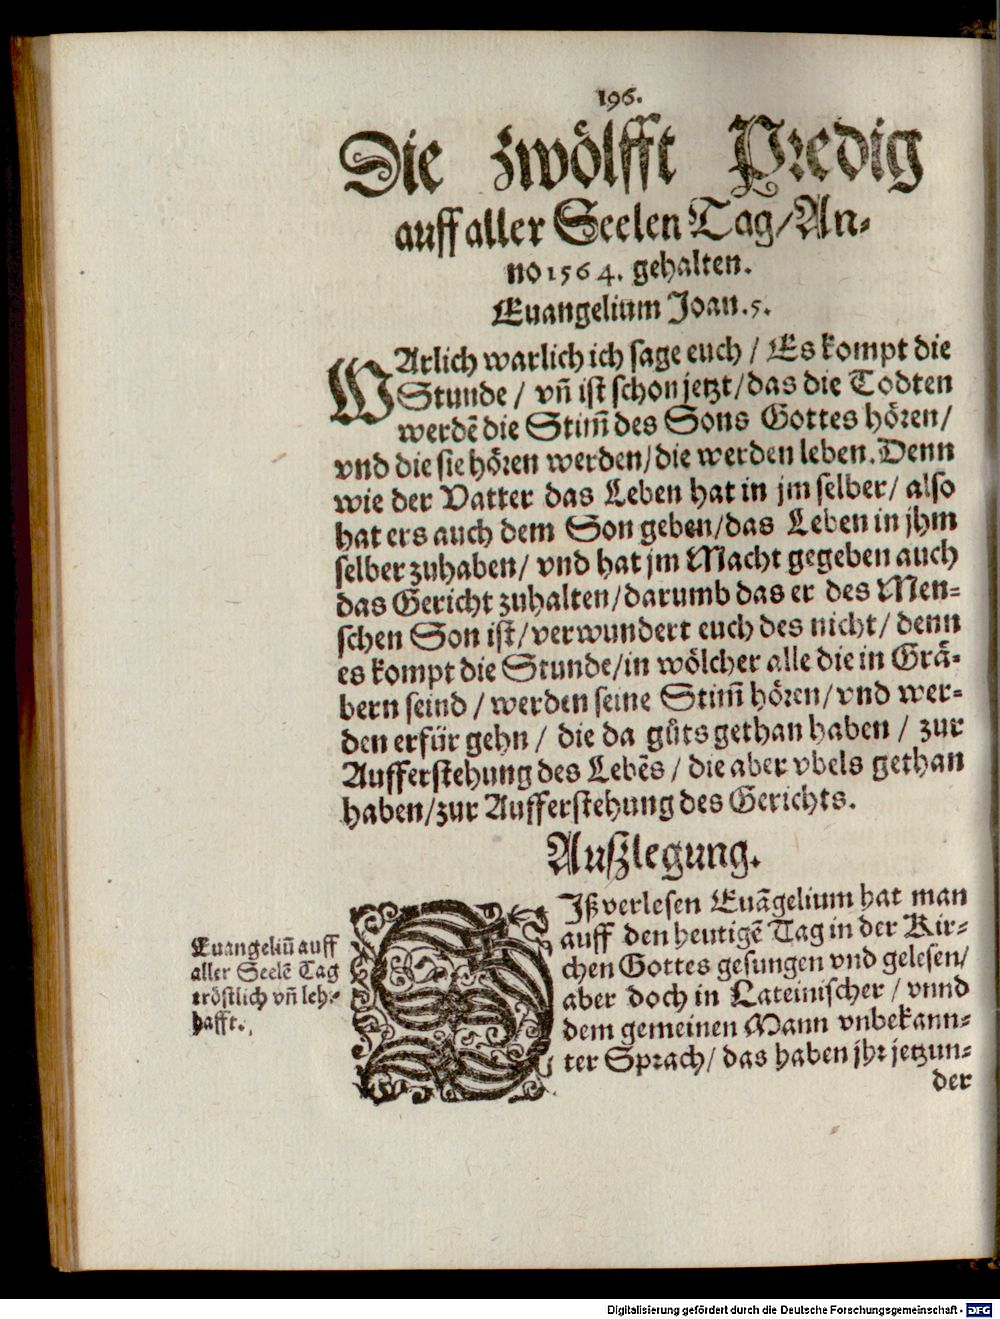 196.
Die zwölfft Predig
auff aller Seelen Tag/An-
no 1564. gehalten.
Euangelium Joan. 5.
WArlich warlich ich sage euch / Es kompt die
Stunde / vñ ist schon jetzt/das die Todten
werdē die Stim̃ des Sons Gottes hören/
vnd die sie hören werden/die werden leben. Denn
wie der Vatter das Leben hat in jm selber/ also
hat ers auch dem Son geben/das Leben in jhm
selber zuhaben/ vnd hat jm Macht gegeben auch
das Gericht zuhalten/darumb das er des Men-
schen Son ist/verwundert euch des nicht/ denn
es kompt die Stunde/in wölcher alle die in Grä-
bern seind / werden seine Stim̃ hören/vnd wer-
den erfür gehn / die da gůts gethan haben / zur
Aufferstehung des Lebēs / die aber vbels gethan
haben/zur Aufferstehung des Gerichts.
Außlegung.
DIß verlesen Euãgelium hat man
auff den heutigē Tag in der Kir-
chen Gottes gesungen vnd gelesen/
aber doch in Lateinischer / vnnd
dem gemeinen Mann vnbekann-
ter Sprach/ das haben jhr jetzun-
der
Euangeliũ auff
aller Seelē Tag
tröstlich vñ lehr-
hafft.
Digitalisierung gefördert durch die Deutsche Forschungsgemeinschaft - DFG